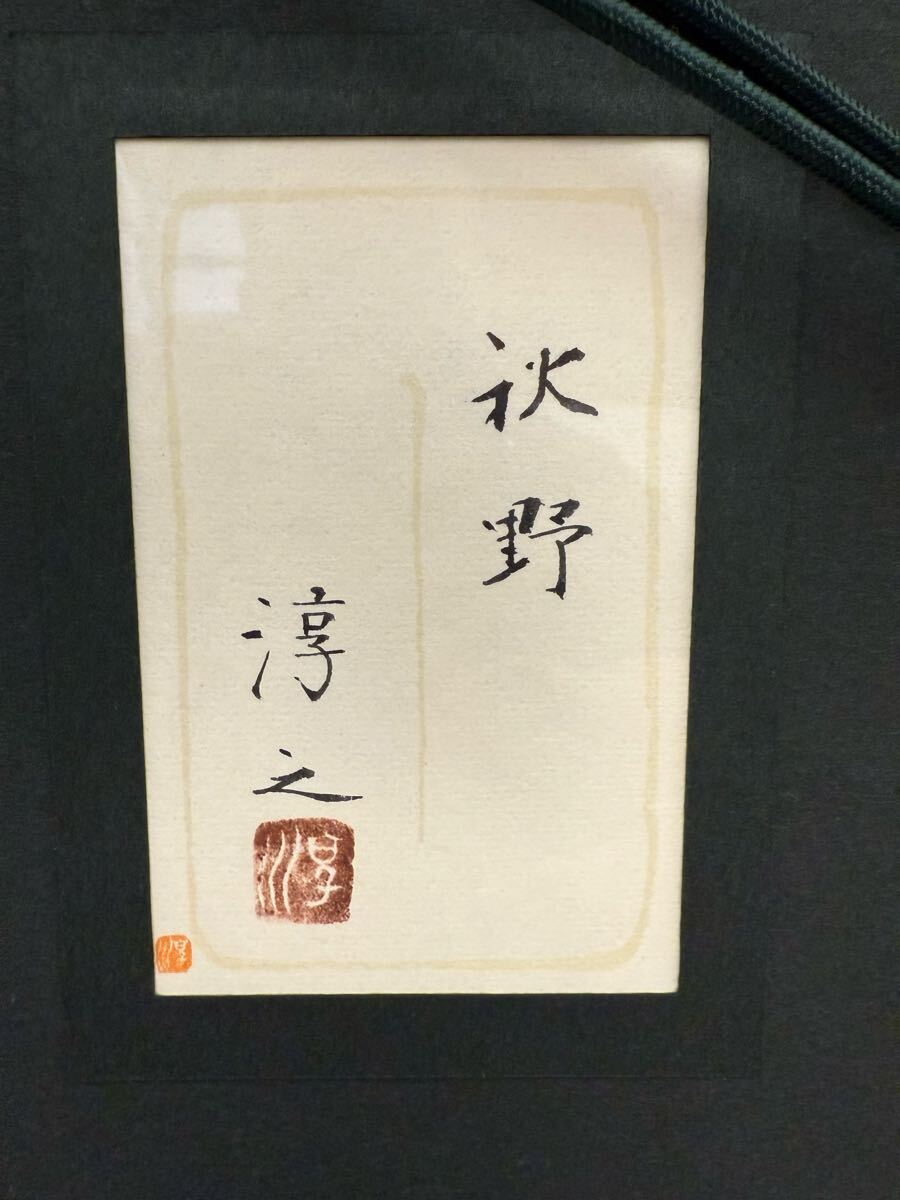 秋野
淳之
淳
淳